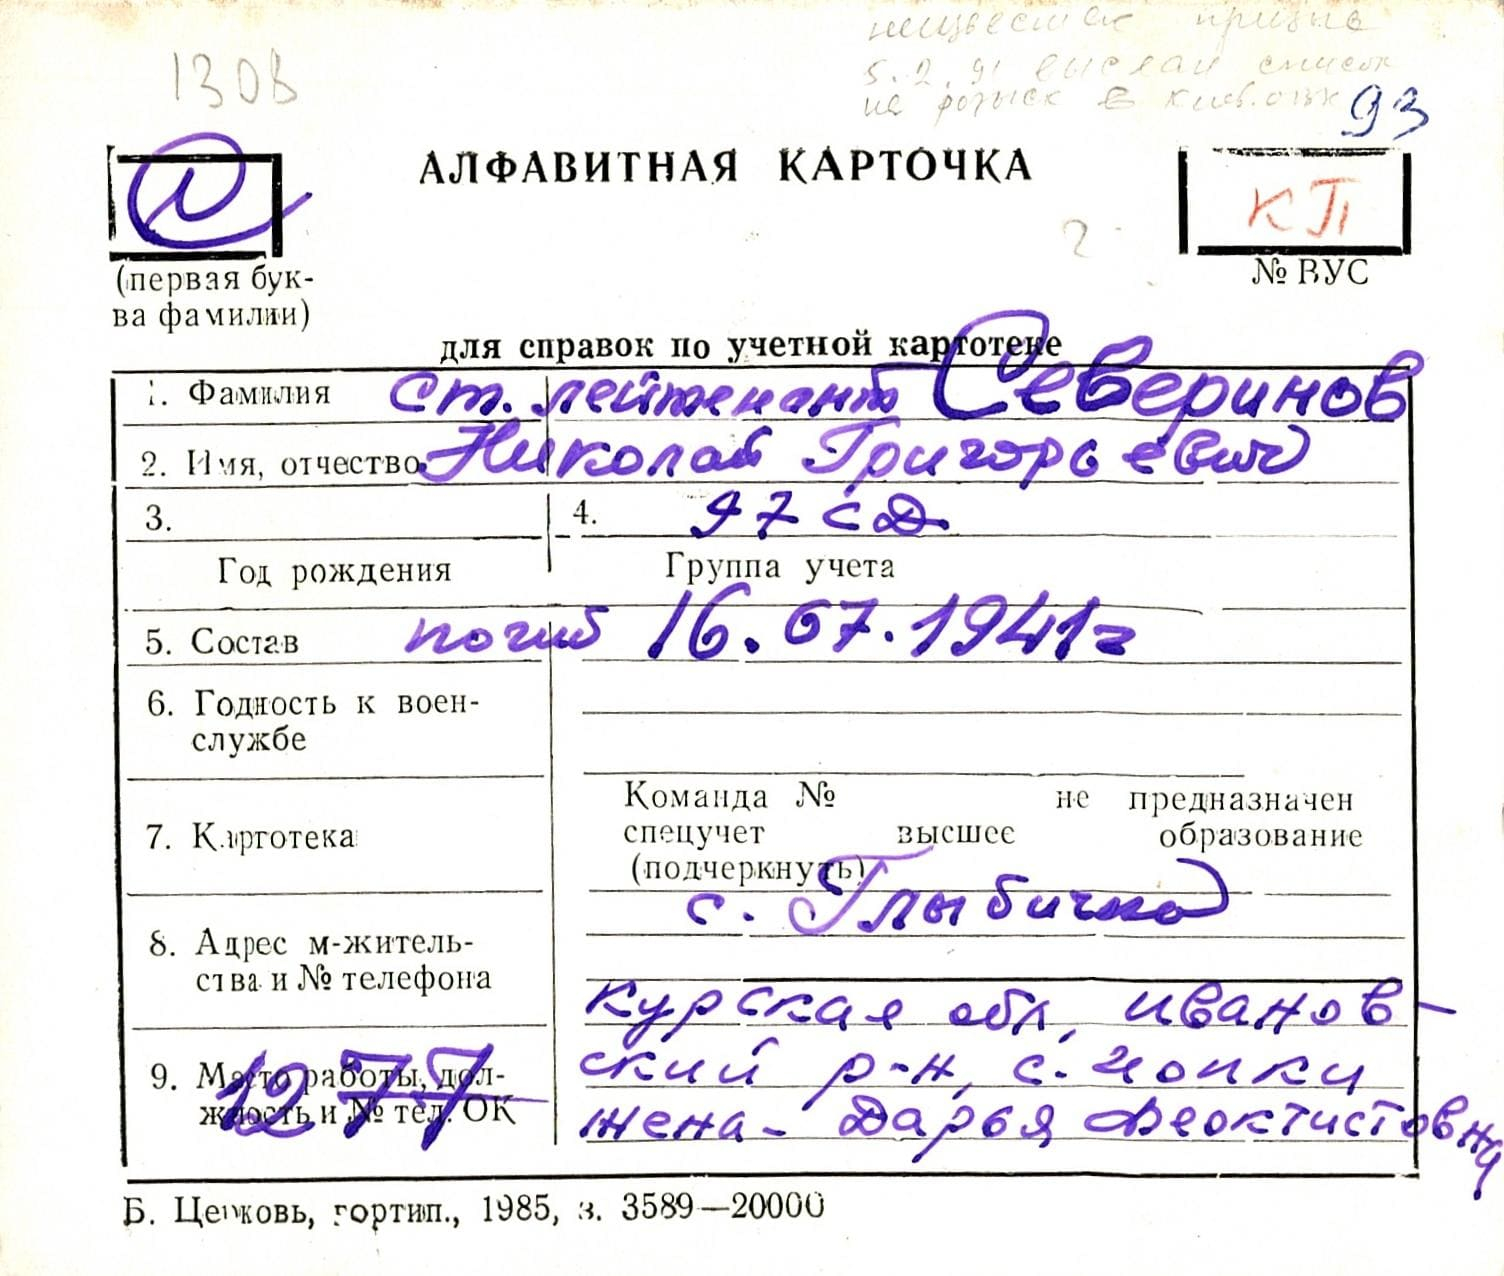 неизвестен призыв
5.2.91 выслан список
на розыск в
1308
93
АЛФАВИТНАЯ КАРТОЧКА
КП
(первая бук-
ва фамилии)
№ ВУС
для справок по учетной картотеке
1. Фамилия ст. лейтенант Северинов
2. Имя, отчество Николай Григорьевич
3. 4. 97 сД
Год рождения Группа учета
5. Состав погиб 16.07.1941г
6. Годность к воен-
службе
Команда № не предназначен
7. Картотека спецучет высшее образование
(подчеркнуть)
с. Глыбичка
8. Адрес м-житель-
ства и № телефона
Курская обл, Иванов-
9. Место работы, дол- ский р-н, с.
жность и № тел. ОК жена - Дарья Феоктистовна
1277
Б. Церковь, гортип., 1985, з. 3589—20000